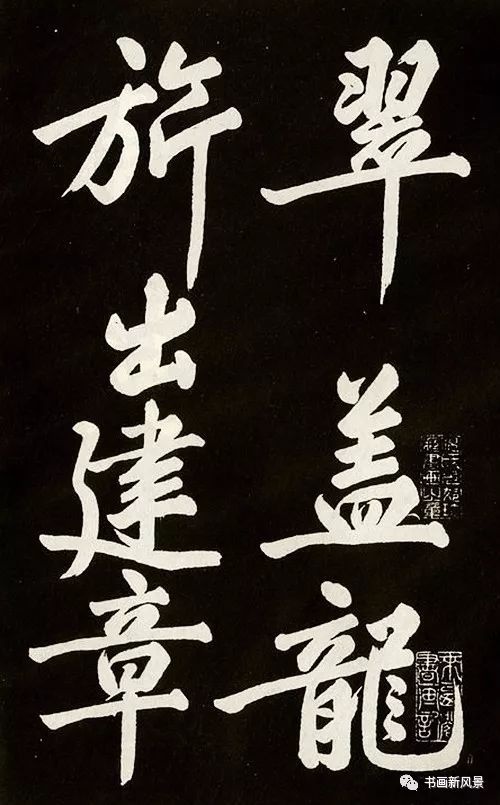 翠盖龍
旂出建章
书画新风景